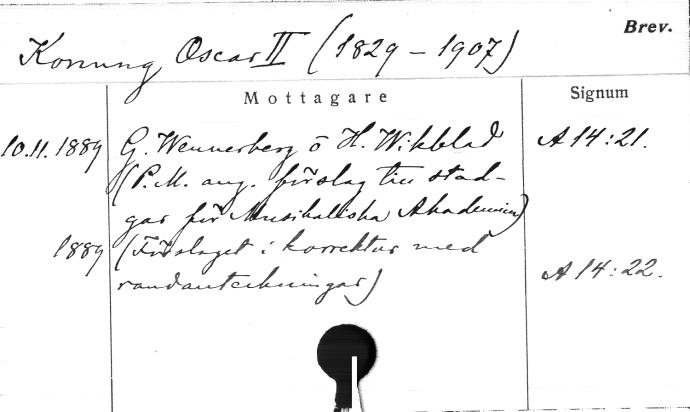 Brev.
Konung Oscar II (1829 – 1907)
Mottagare Signum
10.11.1889 G. Wennerberg o H. Wikblad A 14:21.
(P.M. ang. förslag till stad-
gar för Musikaliska Akademien)
1889 (Förslaget i korrektur med
randanteckningar) A 14:22.